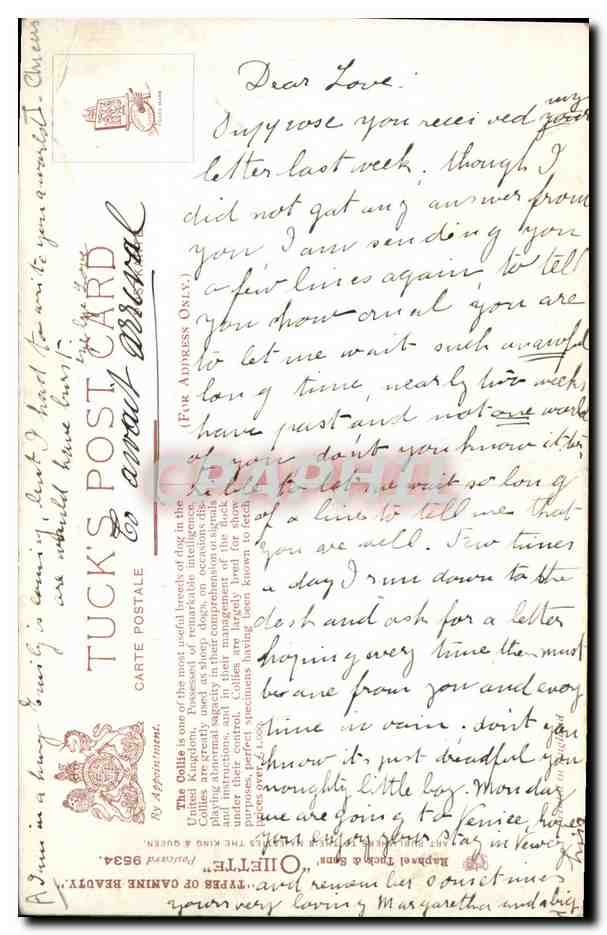 Dear Love.
Suppose you received your my
letter last week, though I
did not gat any answer from
you, I am sending you
a few lines again to tell
you how cruel you are
to let me wait such an awful
long time, nearly two weeks
have past and not one world
of you don't you know it
to let me wait so long
of a line to tell me that
you are well. Few times
a day I run down to the
desk and ask for a letter
hoping every time there must
be one from you and every
time in vain. don't you
know it's just dreadful you
noughty little boy. Monday
we are going to Venice, hope
you enjoy your stay in
and remember sometimes
yours very loving Margaretha and a big
kiss
I am in a hurry Emily is coming, but I had to write to you a world
are would have burst.
To await arrival
TUCK'S POST CARD
CARTE POSTALE
(FOR ADDRESS ONLY.)
By Appointment.
The Collie is one of the most useful breeds of dog in the
United Kingdom. Possessed of remarkable intelligence,
Collies are greatly used as sheep dogs, on occasions dis-
playing abnormal sagacity in their comprehension of signals
and instructions, and in their management of the flock
under their control. Collies are largely bred for show
purposes, perfect specimens having been known to fetch
prices over £1,000.
"TYPES OF CANINE BEAUTY."
"OILETTE" Postcard 9534.
Raphael Tuck & Sons'
ART PUBLISHERS TO THEIR MAJESTIES THE KING & QUEEN.
TRADE MARK
CRAPHIL